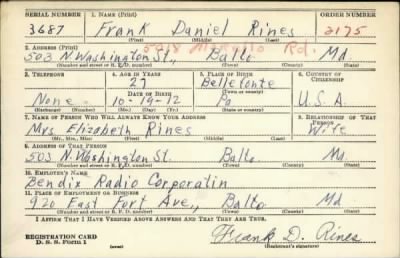 SERIAL NUMBER 1. NAME (Print) ORDER NUMBER
3687 Frank Daniel Rines 2175
(First) (Middle) (Last)
2. ADDRESS (Print) Rd.
503 N. Washington St., Balto Md.
(Number and street or R. F. D. number) (Town) (County) (State)
3. TELEPHONE 4. AGE IN YEARS 5. PLACE OF BIRTH 6. COUNTRY OF CITIZENSHIP
27 Bellefonte
DATE OF BIRTH (Town or county)
None 10-19-12 Pa U.S.A.
(Exchange) (Number) (Mo.) (Day) (Yr.) (State or country)
7. NAME OF PERSON WHO WILL ALWAYS KNOW YOUR ADDRESS 8. RELATIONSHIP OF THAT PERSON
Mrs. Elizabeth Rines Wife
(Mr., Mrs., Miss) (First) (Middle) (Last)
9. ADDRESS OF THAT PERSON
503 N. Washington St. Balto. Md.
(Number and street or R. F. D. number) (Town) (County) (State)
10. EMPLOYER'S NAME
Bendix Radio Corporatin
11. PLACE OF EMPLOYMENT OR BUSINESS
920 East Fort Ave., Balto Md.
(Number and street or R. F. D. number) (Town) (County) (State)
I AFFIRM THAT I HAVE VERIFIED ABOVE ANSWERS AND THAT THEY ARE TRUE.
REGISTRATION CARD
D. S. S. Form 1 (over) Frank D. Rines
(Registrant's signature)